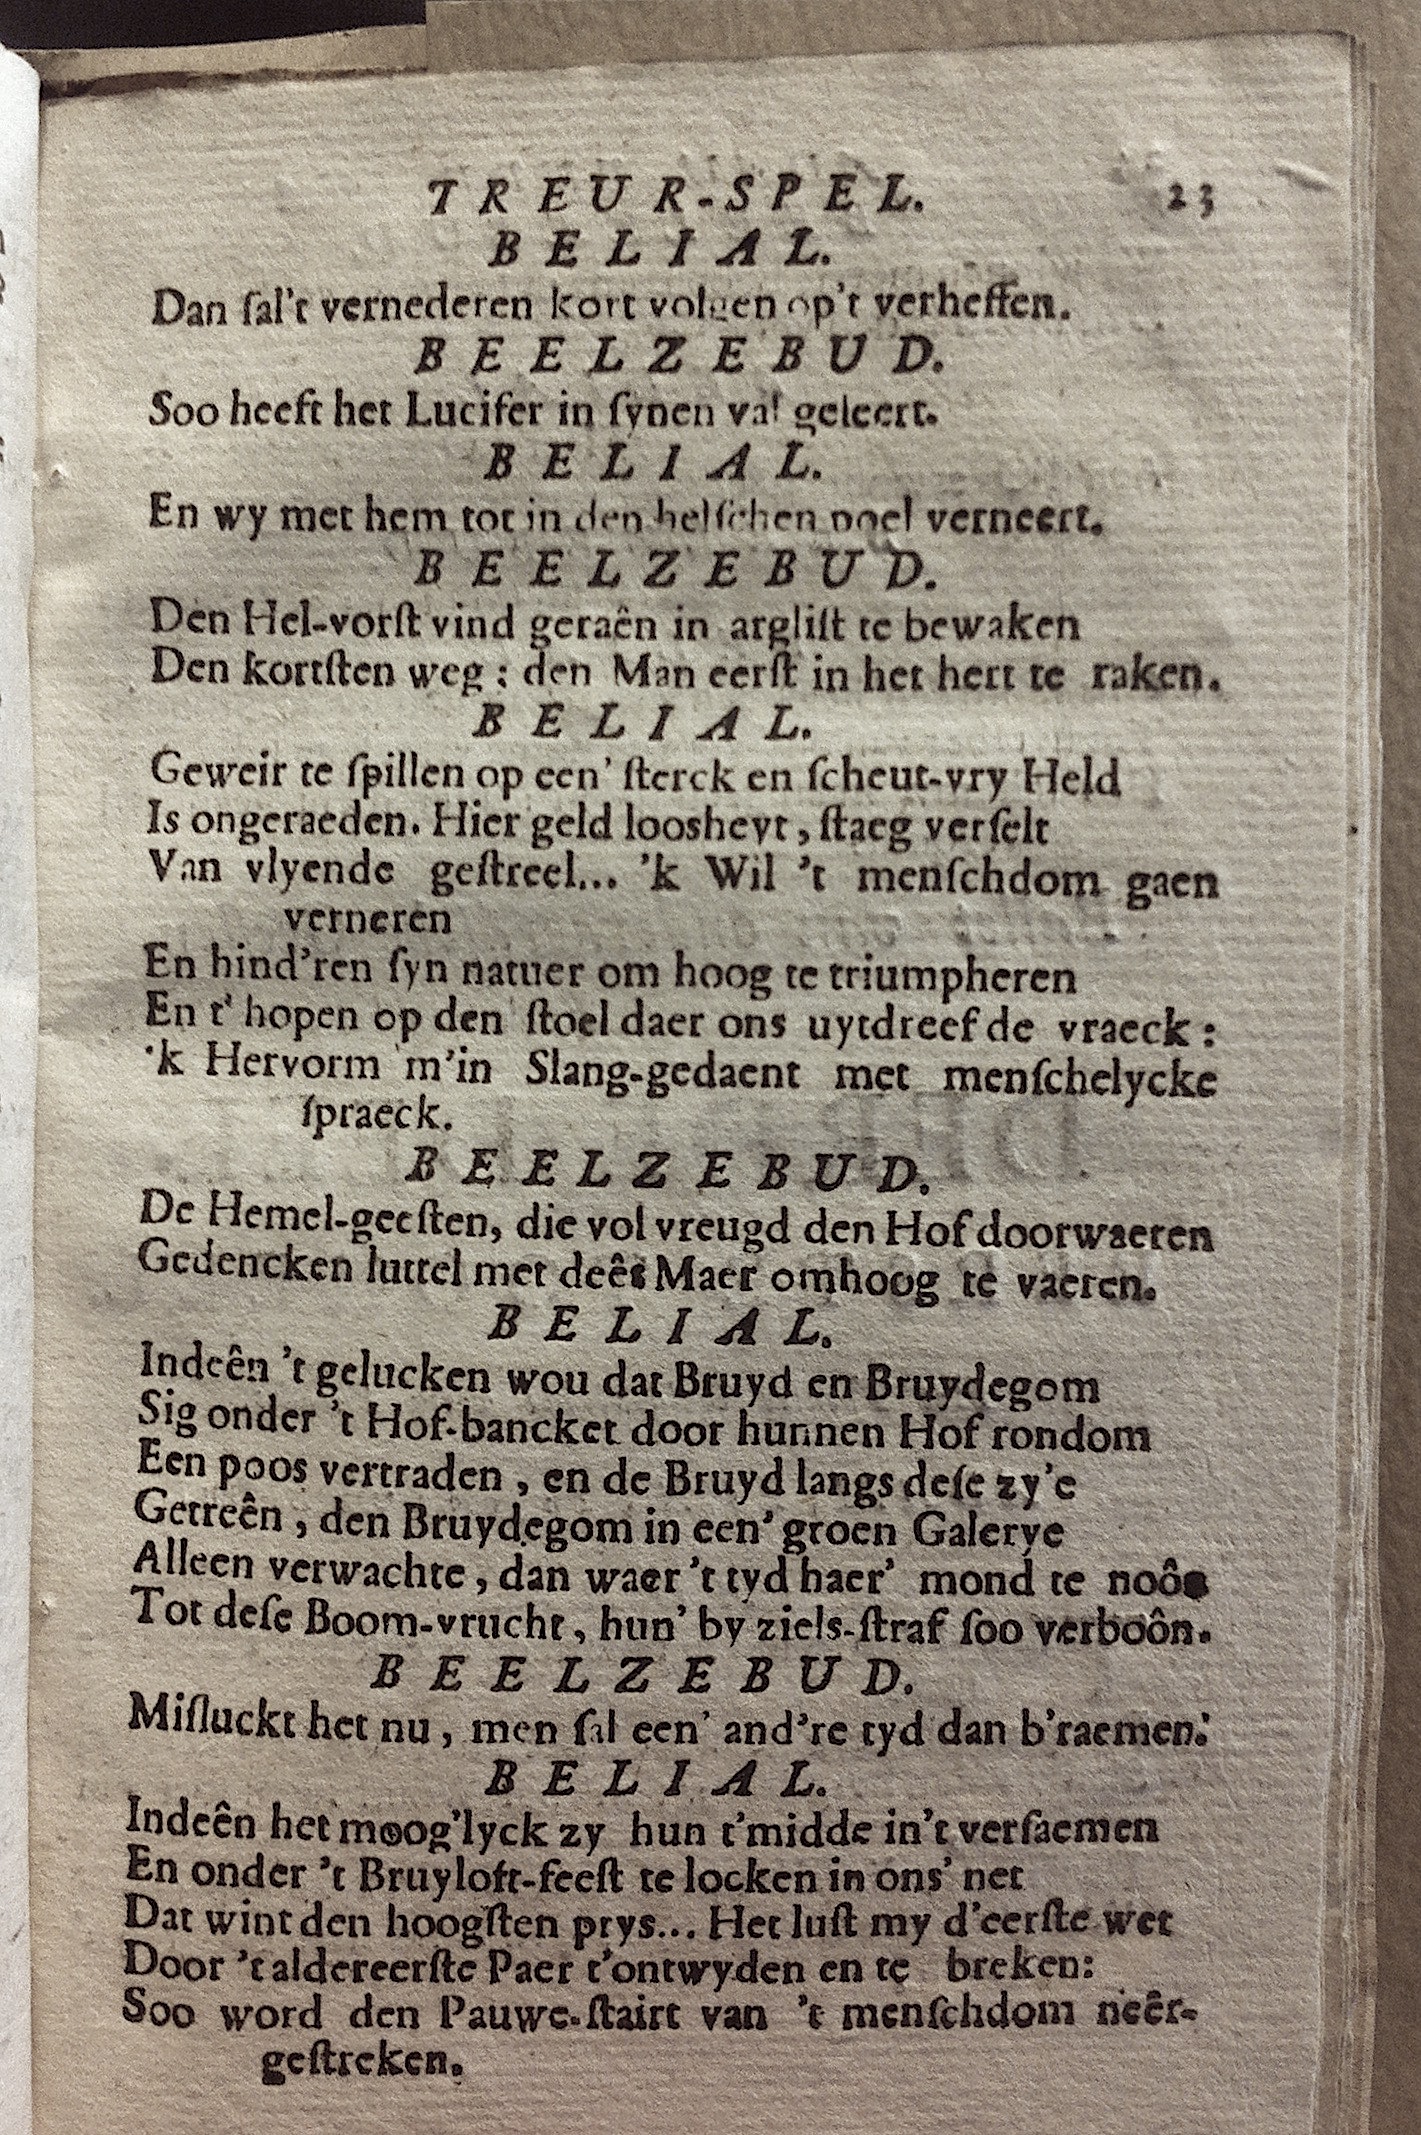 TREUR-SPEL. 23
BELIAL.
Dan ſal't vernederen kort volgen op't verheffen.
BEELZEBUD.
Soo heeft het Lucifer in ſynen val geleert.
BELIAL.
En wy met hem tot in den helſchen poel verneert.
BEELZEBUD.
Den Hel-vorſt vind geraên in argliſt te bewaken
Den kortſten weg : den Man eerſt in het hert te raken.
BELIAL.
Geweir te ſpillen op een' ſterck en ſcheut-vry Held
Is ongeraeden. Hier geld loosheyt, ſtaeg verſelt
Van vlyende geſtreel... 'k Wil 't menſchdom gaen
verneren
En hind'ren ſyn natuer om hoog te triumpheren
En t' hopen op den ſtoel daer ons uytdreef de vraeck :
'k Hervorm m'in Slang-gedaent met menſchelycke
ſpraeck.
BEELZEBUD.
De Hemel-geeſten, die vol vreugd den Hof doorwaeren
Gedencken luttel met deês Maer omhoog te vaeren.
BELIAL.
Indeên 't gelucken wou dat Bruyd en Bruydegom
Sig onder 't Hof-bancket door hunnen Hof rondom
Een poos vertraden, en de Bruyd langs deſe zy'e
Getreên, den Bruydegom in een' groen Galerye
Alleen verwachte, dan waer 't tyd haer' mond te noôn
Tot deſe Boom-vrucht, hun' by ziels-ſtraf ſoo verboôn.
BEELZEBUD.
Miſluckt het nu, men ſal een' and're tyd dan b'raemen.
BELIAL.
Indeên het moog'lyck zy hun t'midde in't verſaemen
En onder 't Bruyloft-feeſt te locken in ons' net
Dat wint den hoogſten prys... Het luſt my d'eerſte wet
Door 't aldereerſte Paer t'ontwyden en te breken:
Soo word den Pauwe-ſtairt van 't menſchdom neêr-
geſtreken.